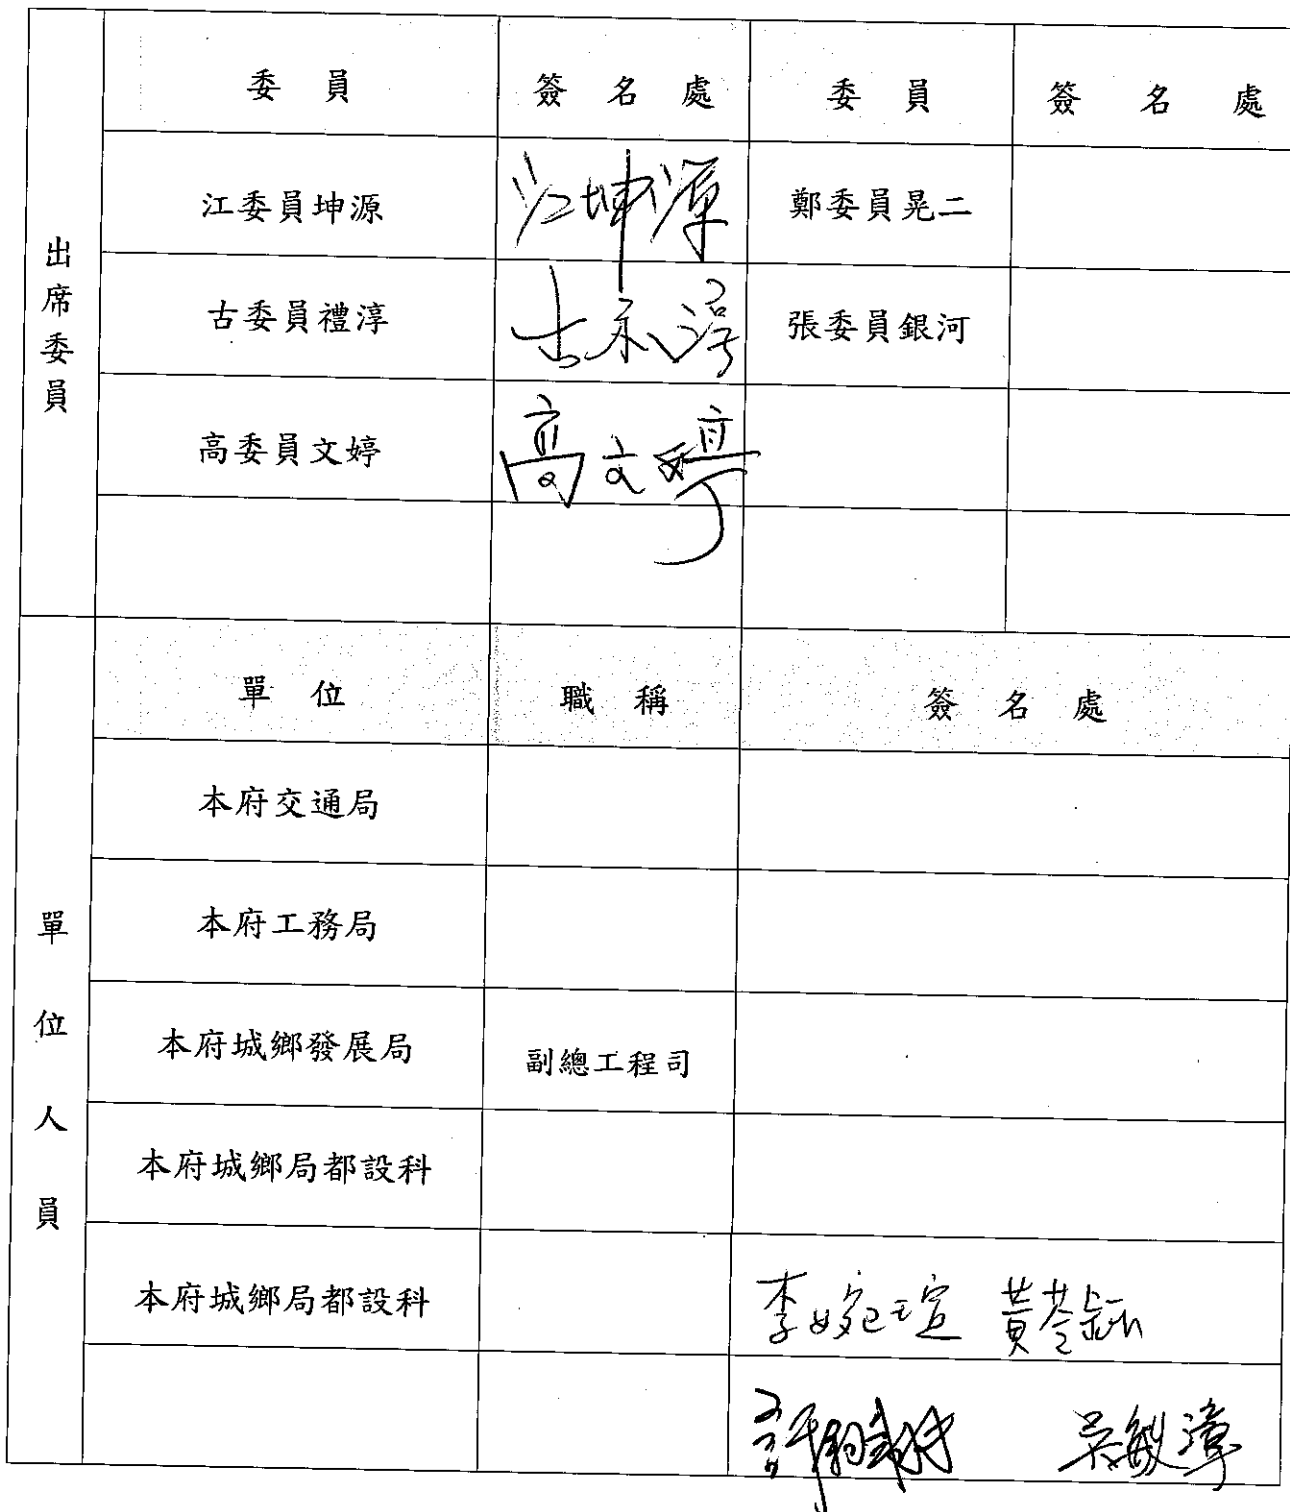 委員 簽名處 委員 簽名處
出席委員
江委員坤源 江坤源 鄭委員晃二
古委員禮淳 古禾淳 張委員銀河
高委員文婷 高文婷
單位 職稱 簽名處
單位人員
本府交通局
本府工務局
本府城鄉發展局 副總工程司
本府城鄉局都設科
本府城鄉局都設科 李婉瑄 黃苓
吳敏漳